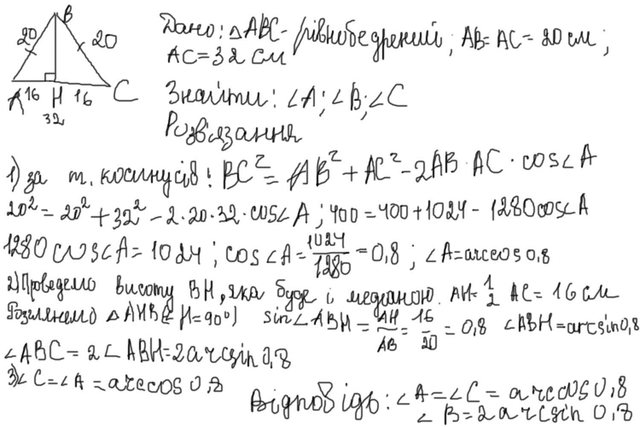 B
20 20
A 16 H 16 C
32
Дано: △ABC - рівнобедрений; AB = AC = 20 см;
AC = 32 см
Знайти: ∠A; ∠B; ∠C
Розв'язання
1) за т. косинусів: BC² = AB² + AC² - 2AB · AC · cos∠A
20² = 20² + 32² - 2·20·32·cos∠A; 400 = 400 + 1024 - 1280cos∠A
1280cos∠A = 1024; cos∠A = 1024/1280 = 0,8; ∠A = arccos 0,8
2) Проведемо висоту BH, яка буде і медіаною. AH = 1/2 AC = 16 см
Розглянемо △AHB (∠H = 90°) sin∠ABH = AH/AB = 16/20 = 0,8 ∠ABH = arcsin 0,8
∠ABC = 2∠ABH = 2arcsin 0,8
3) ∠C = ∠A = arccos 0,8
Відповідь: ∠A = ∠C = arccos 0,8
∠B = 2arcsin 0,8